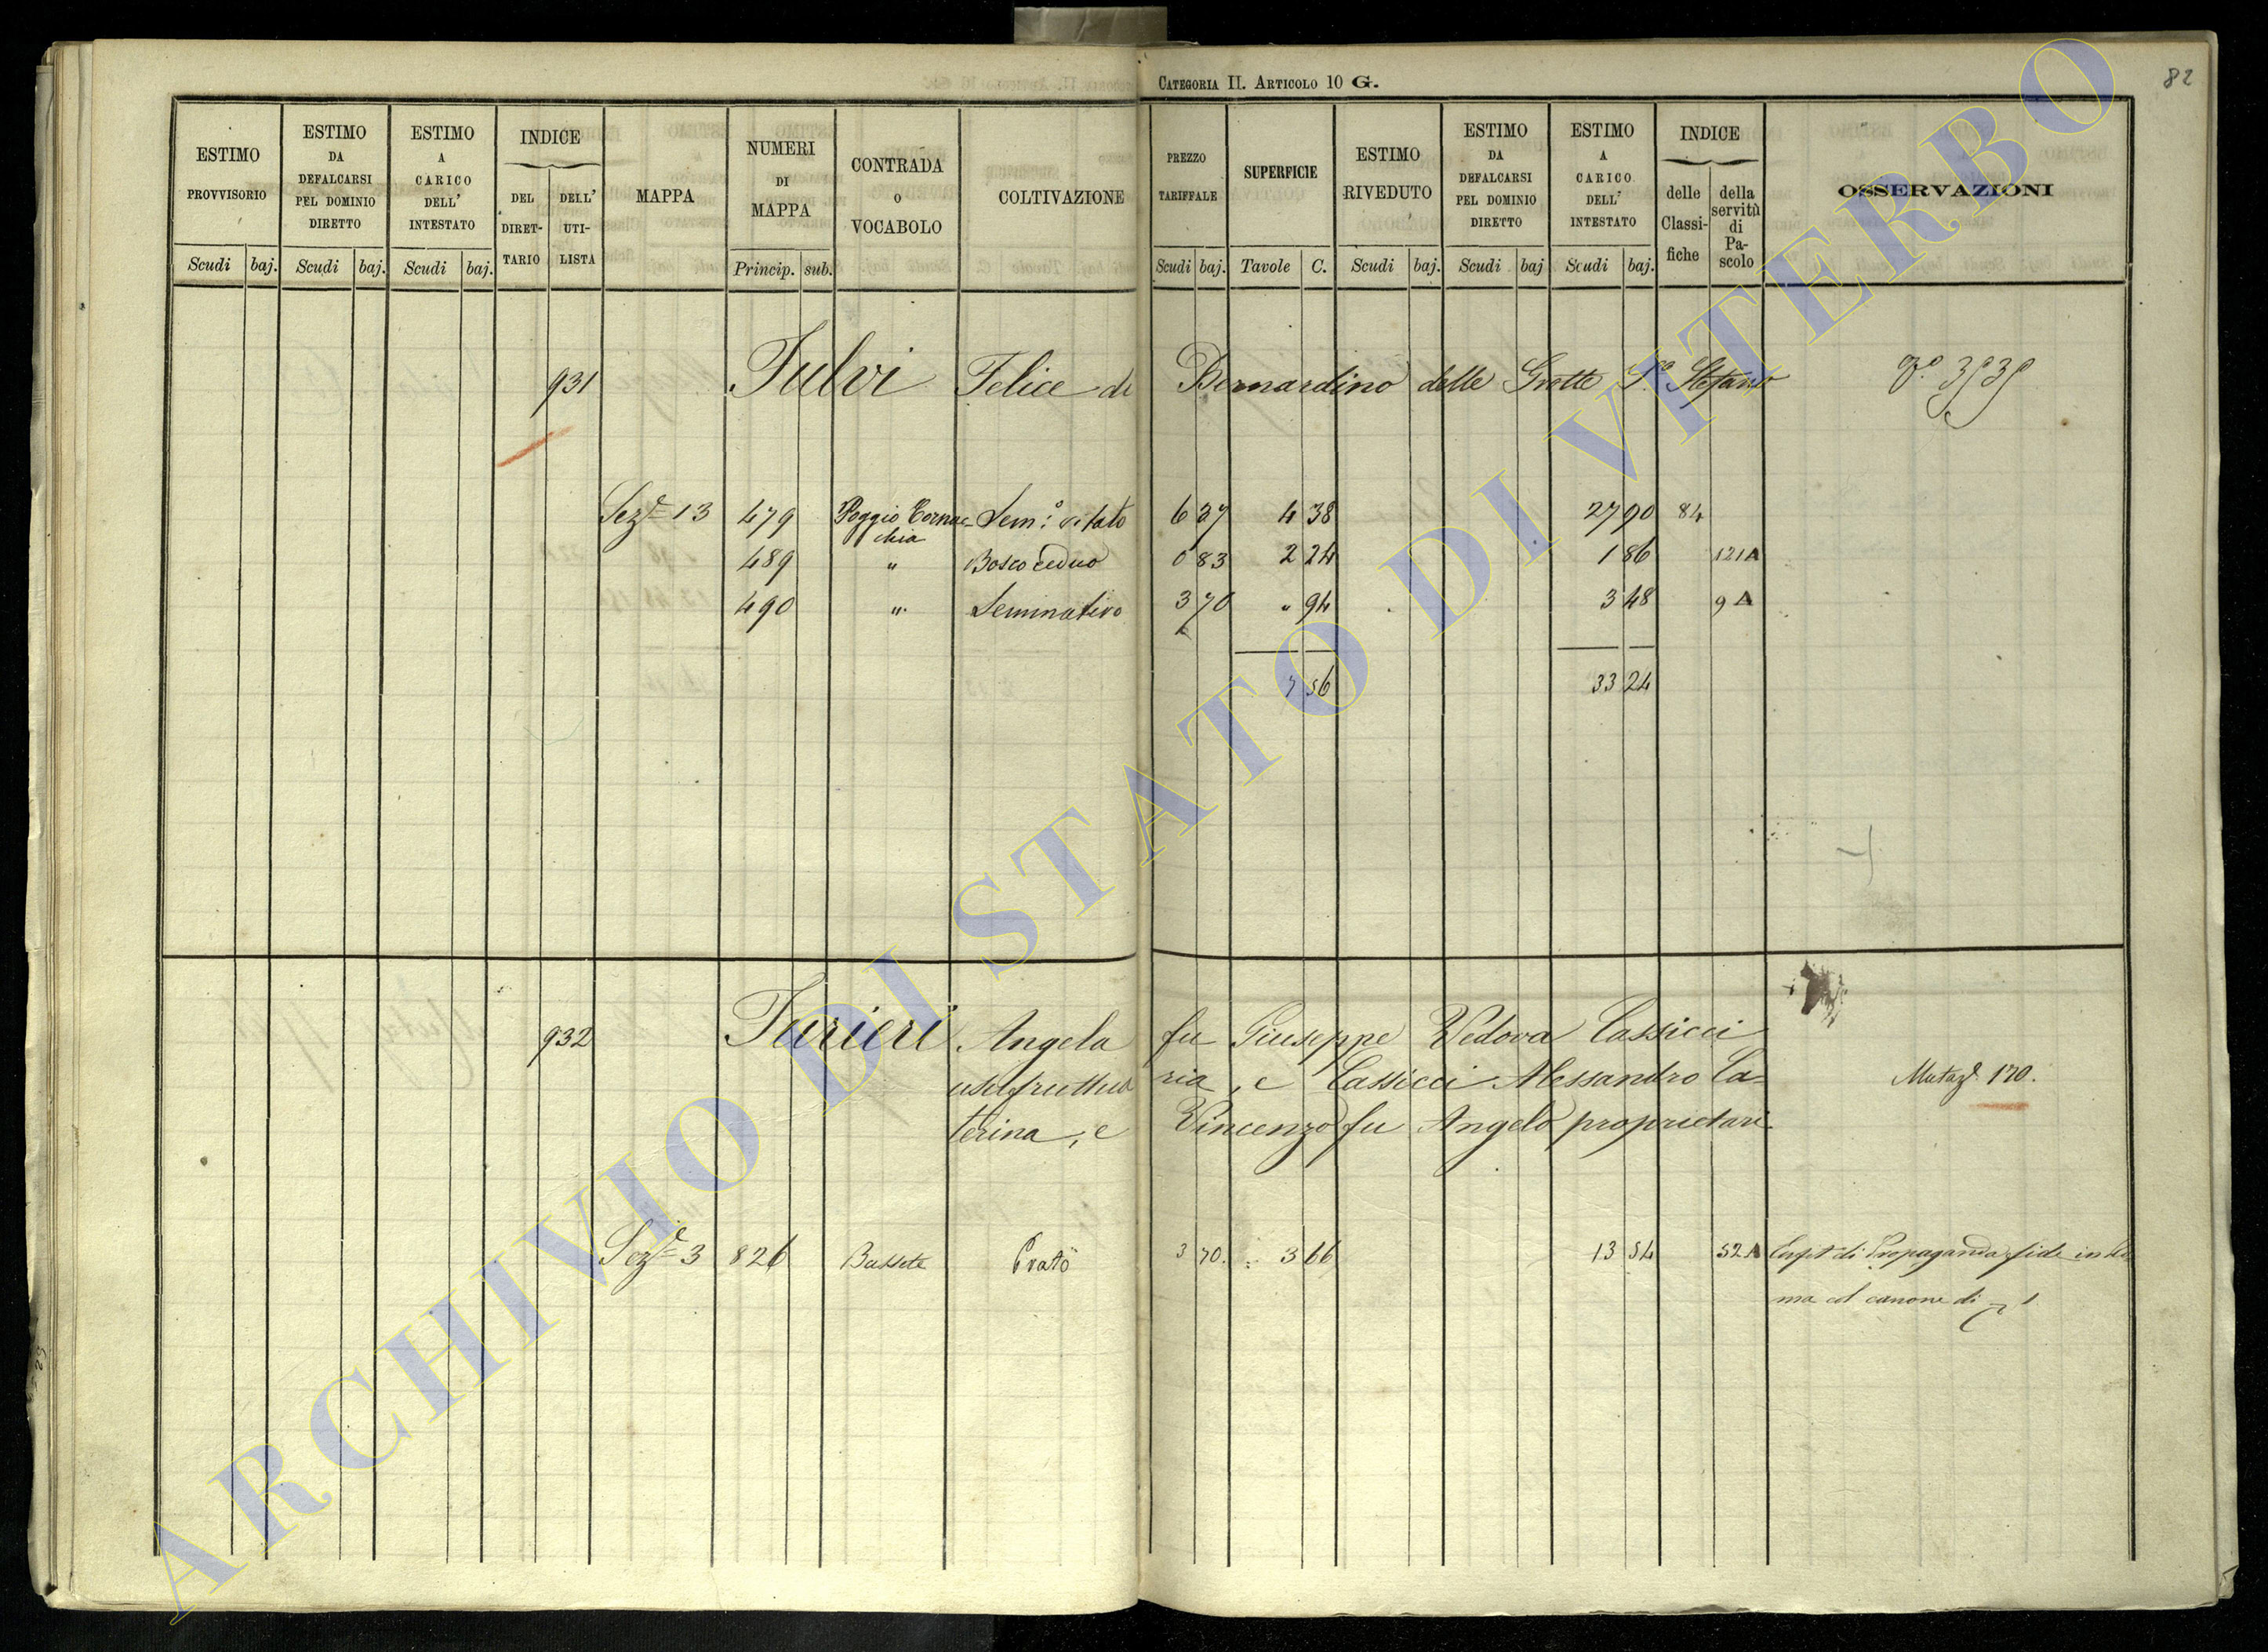 CATEGORIA II. ARTICOLO 10 G.
82
ESTIMO PROVVISORIO
ESTIMO DA DEFALCARSI PEL DOMINIO DIRETTO
ESTIMO A CARICO DELL' INTESTATO
INDICE
DEL DIRET-TARIO
DELL' UTI-LISTA
MAPPA
NUMERI DI MAPPA
CONTRADA O VOCABOLO
COLTIVAZIONE
PREZZO TARIFFALE
SUPERFICIE
ESTIMO RIVEDUTO
ESTIMO DA DEFALCARSI PEL DOMINIO DIRETTO
ESTIMO A CARICO DELL' INTESTATO
INDICE
delle Classi-fiche
della servitù di Pa-scolo
OSSERVAZIONI
Scudi baj. Scudi baj. Scudi baj. Princip. sub. Scudi baj. Tavole C. Scudi baj. Scudi baj Scudi baj.
931 Fulvi Felice di Bernardino delle Grotte Sto Stefano
Seze 13 479 Poggio Cornac-chia Semo vitato 6 37 4 38 27 90 84
489 " Bosco ceduo 0 83 2 24 1 86 121A
490 " Seminativo 3 70 " 94 3 48 9 A
7 56 33 24
932 Furieri Angela fu Giuseppe Vedova Cassicci
usufruttuaria, e Cassicci Alessandro Ca=
terina, e Vincenzo fu Angelo proprietari
Mutaze 170.
Seze 3 826 Bussete Prato 3 70. 3 66 13 54 52 A di Propaganda fide in Ro
ma col canone di 1
ARCHIVIO DI STATO DI VITERBO